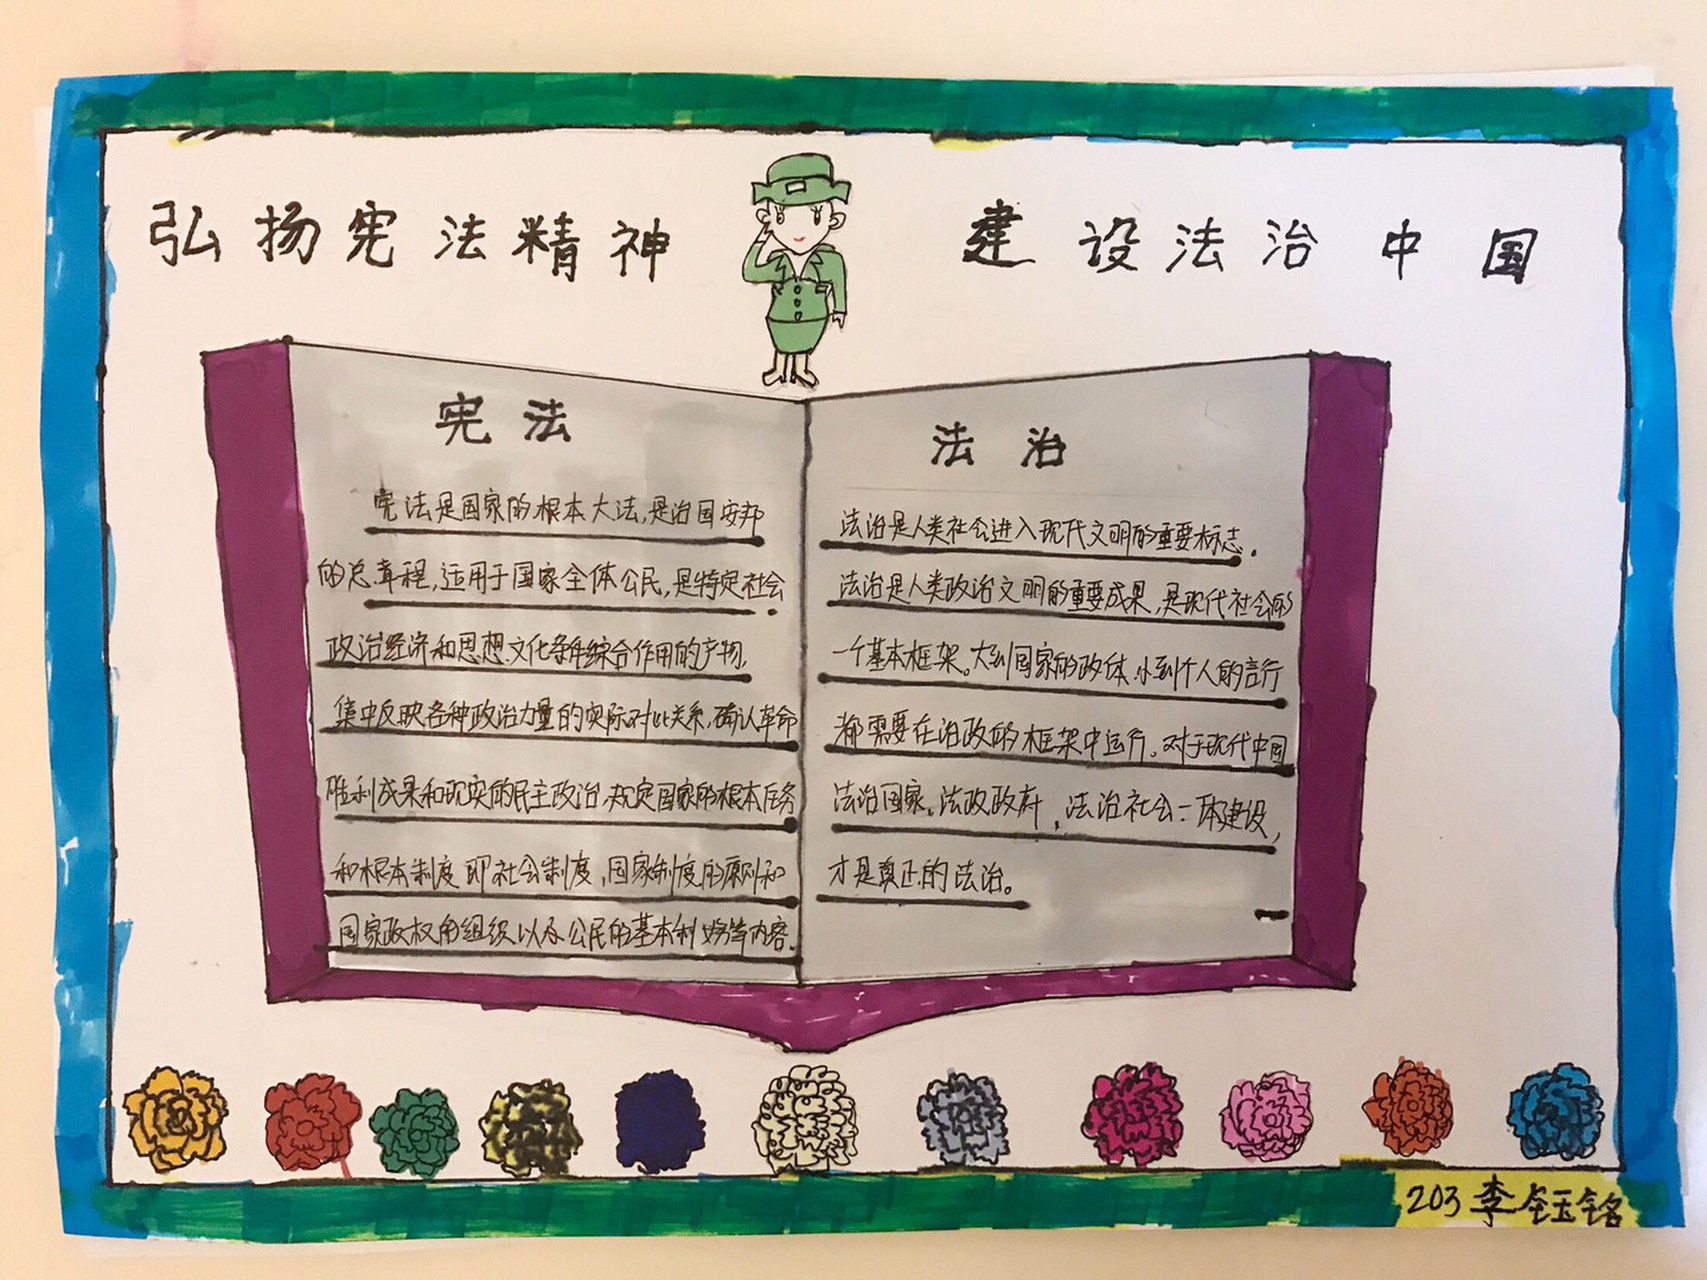 弘扬宪法精神 建设法治中国
宪法
宪法是国家的根本大法,是治国安邦
的总章程,适用于国家全体公民,是特定社会
政治经济和思想文化条件综合作用的产物,
集中反映各种政治力量的实际对比关系,确认革命
胜利成果和现实的民主政治,规定国家的根本任务
和根本制度即社会制度,国家制度的原则和
国家政权的组织以及公民的基本利义务等内容.
法治
法治是人类社会进入现代文明的重要标志.
法治是人类政治文明的重要成果,是现代社会的
一个基本框架。大到国家的政体,小到个人的言行
都需要在治政的框架中运行。对于现代中国
法治国家,法政政府,法治社会一体建设,
才是真正的法治。
203 李钰铭